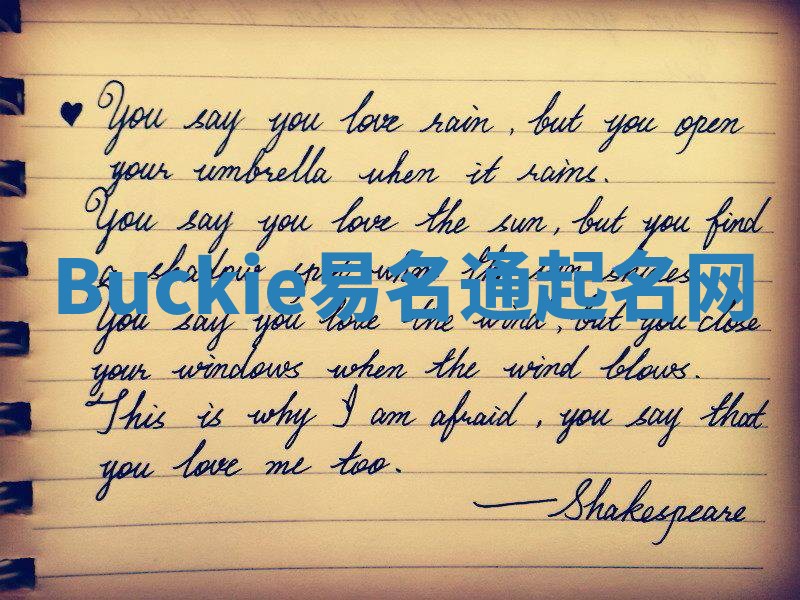 ♥ You say you love rain, but you open
your umbrella when it rains.
You say you love the sun, but you find
a shadow spot when the sun shines.
Buckie易名通起名网
You say you love the wind, but you close
your windows when the wind blows.
This is why I am afraid, you say that
you love me too.
—Shakespeare